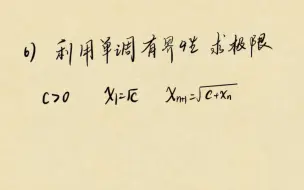 6) 利用单调有界性 求极限
c>0 x₁=√c xₙ₊₁=√(c+xₙ)